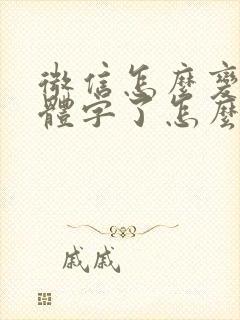 微信怎麼變
體字了怎麼
戚戚